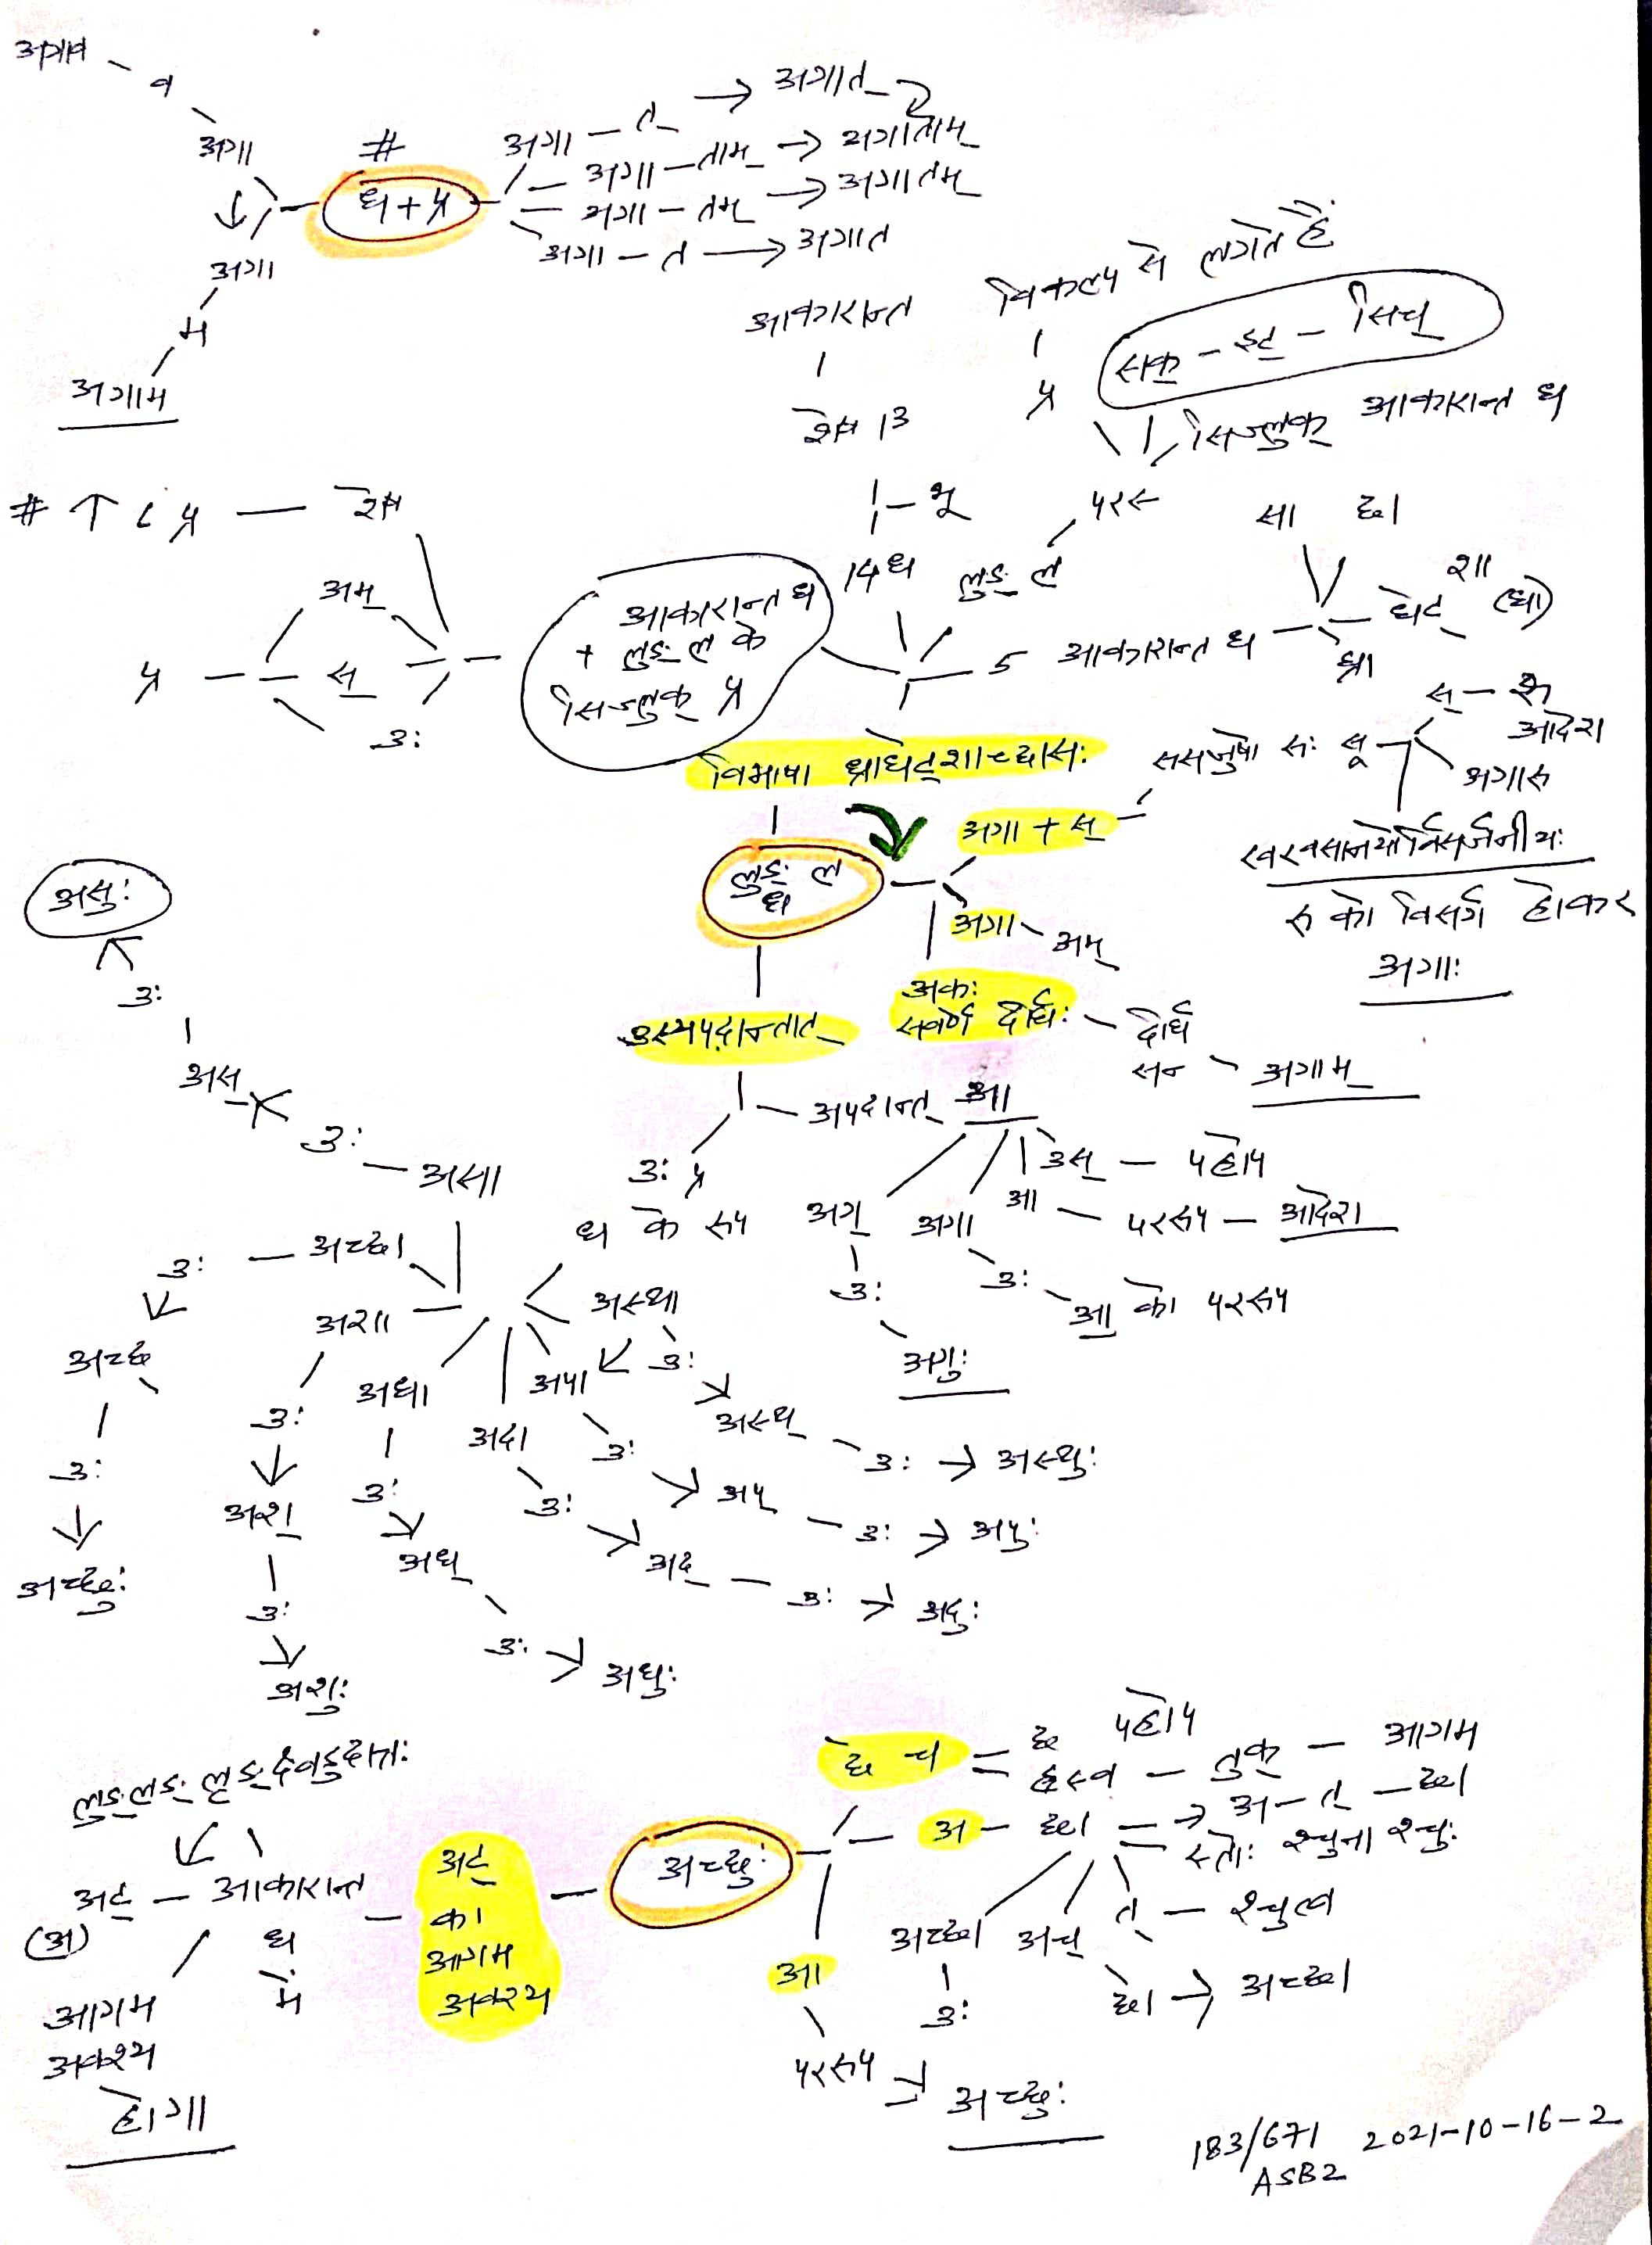 अगाव
व
अगा
#
ध + प्र
अगा
म
अगाम
अगा — त् → अगात्
अगा — ताम् → अगाताम्
अगा — तम् → अगातम्
अगा — त → अगात
आकारान्त
विकल्प से लगते हैं
सक् - इट् - सिच्
प्र
सिज्लुक् आकारान्त ध
शेष 13
# ↑ ८ प्र — शेष
भू
14 ध
लुङ् ल
परस्
सा छा
शा
धेट् (धा)
घ्रा
5 आकारान्त ध
अम्
प्र — स्
उः
आकारान्त ध
+ लुङ् ल के
सिज्लुक् प्र
विभाषा घ्राधेट्शाच्छासः
ससजुषो रुः
स् — रु
आदेश
अगारु
अगा + स्
खरवसानयोर्विसर्जनीयः
रु को विसर्ग होकर
अगाः
लुङ् ल
ध
अगा
अम्
अकः
सवर्णे दीर्घः
दीर्घ
सन्
अगाम्
उस्यपदान्तात्
अपदान्त आ
उस् — पहोप
आ — पररुप — आदेश
उः प्र
ध के रुप
अग्
उः
अगुः
अगा
उः
आ को पररुप
असुः
उः
अस्
उः
असा
उः — अच्छा
अच्छ
उः
अच्छुः
अशा
उः
अश्
उः
अशुः
अधा
उः
अध्
उः → अधुः
अदा
उः
अद् — उः → अदुः
अपा
उः
अप् — उः → अपुः
अस्था
उः
अस्थ् — उः → अस्थुः
लुङ्लङ्लृङ्क्ष्वडुदात्तः
अट् — आकारान्त
(अ)
ध
में
आगम
अवश्य
होगा
अट्
का
आगम
अवश्य
अच्छुः
छे च
छ पहोप
ह्रस्व — तुक् — आगम
अ — छा → अ - त् — छा
स्तोः श्चुना श्चुः
त् — श्चुत्व
अच्छा
उः
अच्
छा → अच्छा
आ
पररुप → अच्छुः
183/671 2021-10-16-2
ASB2